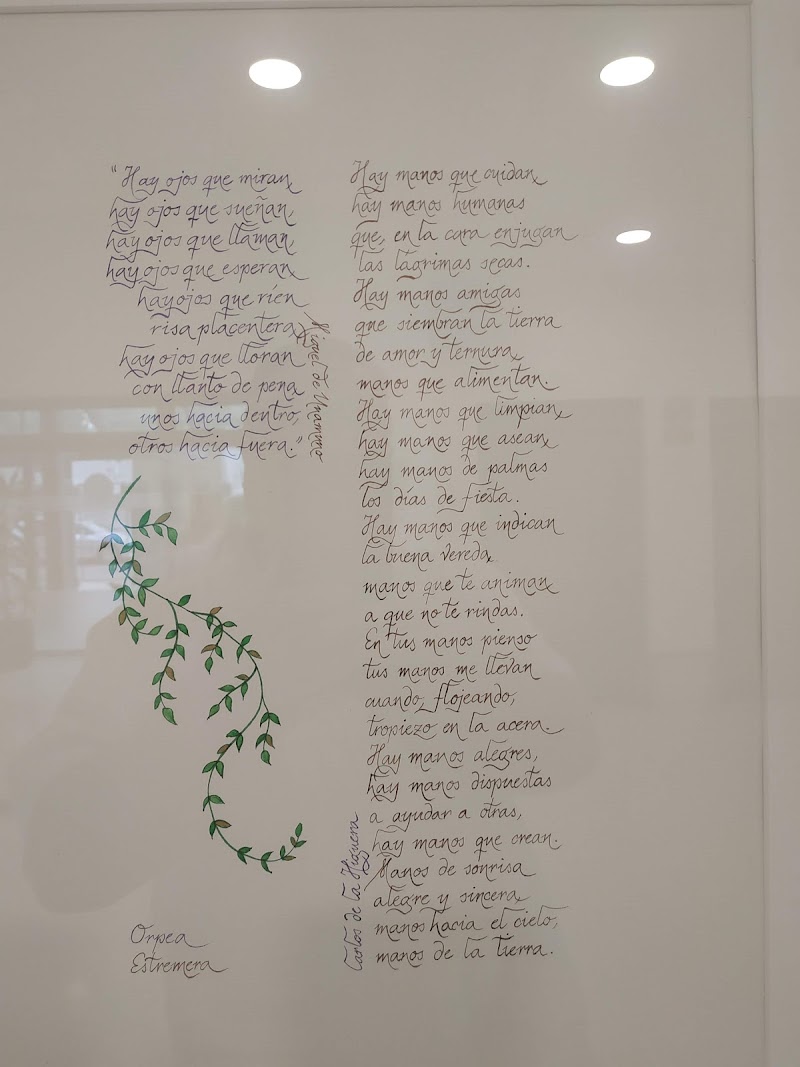 "Hay ojos que miran,
hay ojos que sueñan,
hay ojos que llaman,
hay ojos que esperan,
hay ojos que ríen
risa placentera,
hay ojos que lloran
con llanto de pena,
unos hacia dentro,
otros hacia fuera."
Miguel de Unamuno
Hay manos que cuidan,
hay manos humanas
que, en la cara enjugan
las lágrimas secas.
Hay manos amigas
que siembran la tierra
de amor y ternura,
manos que alimentan.
Hay manos que limpian,
hay manos que asean,
hay manos de palmas
los días de fiesta.
Hay manos que indican
la buena vereda,
manos que te animan
a que no te rindas.
En tus manos pienso
tus manos me llevan
cuando, flojeando,
tropiezo en la acera.
Hay manos alegres,
hay manos dispuestas
a ayudar a otras,
hay manos que crean.
Manos de sonrisa
alegre y sincera,
manos hacia el cielo,
manos de la tierra.
Carlos de la Higuera
Orpea
Estremera